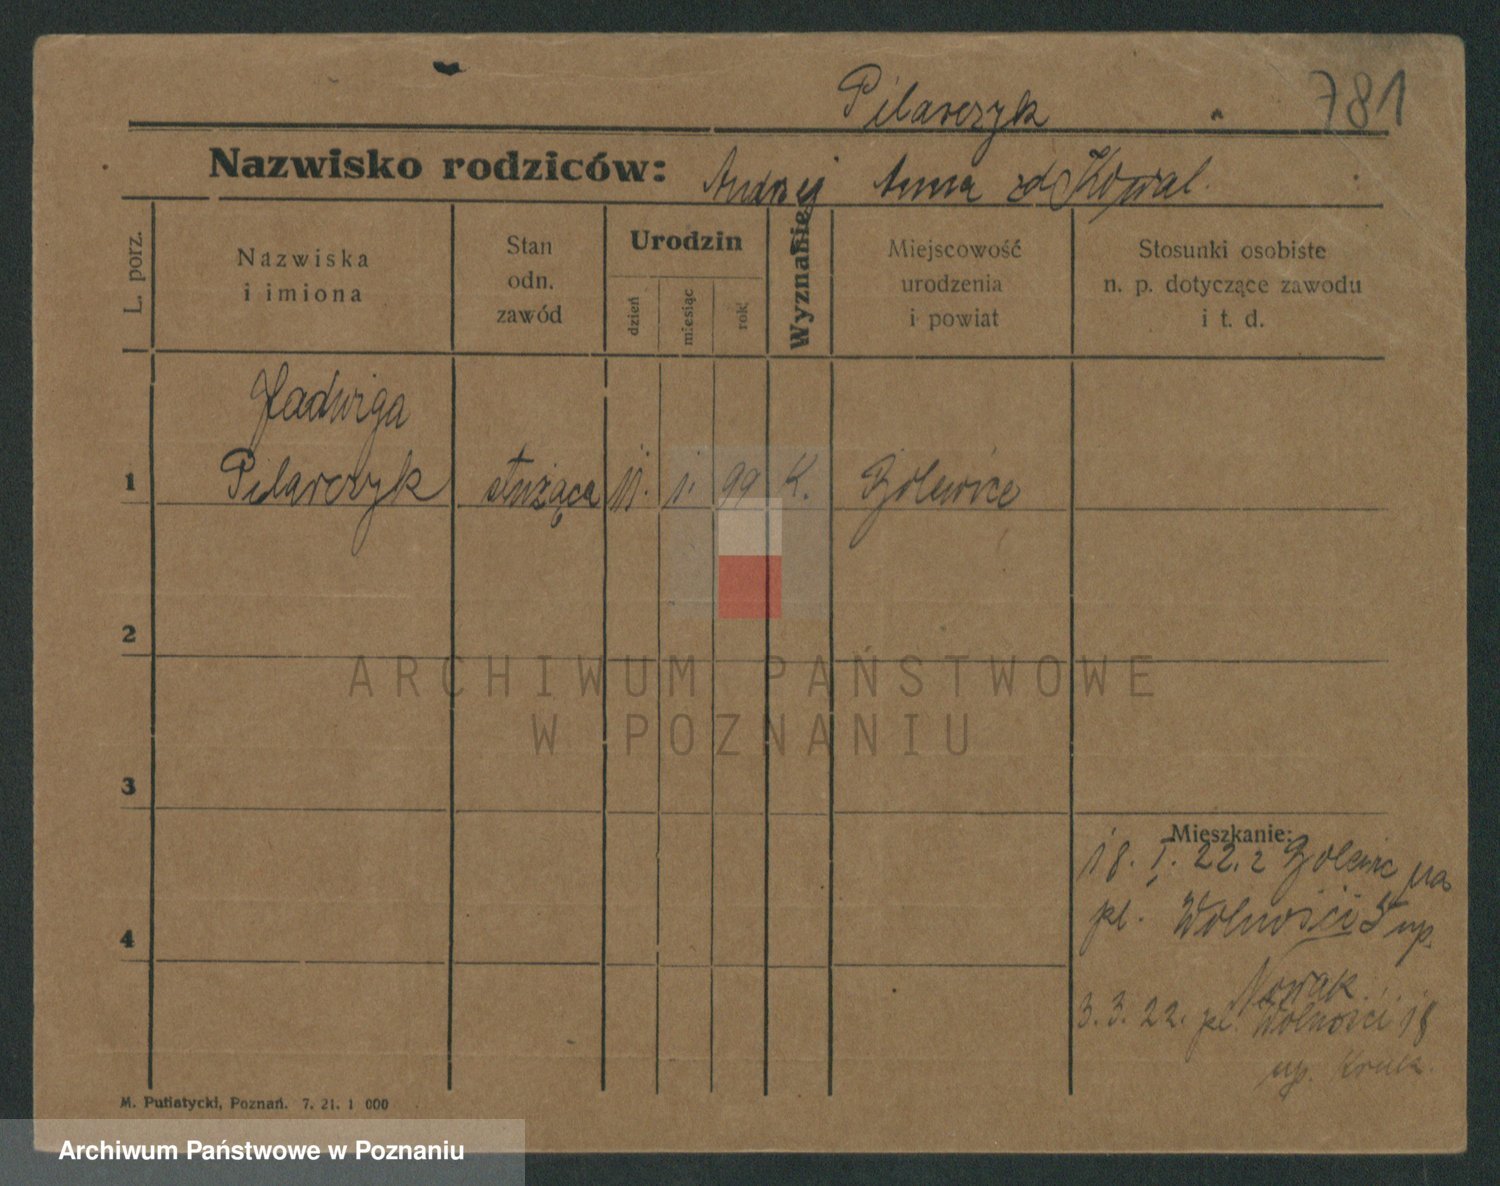 Pilarczyk 781
Nazwisko rodziców: Andrzej Anna zd Kowal.
L. porz.
Nazwiska
i imiona
Stan
odn.
zawód
Urodzin
dzień
miesiąc
rok
Wyznanie
Miejscowość
urodzenia
i powiat
Stosunki osobiste
n. p. dotyczące zawodu
i t. d.
Jadwiga
1 Pilarczyk służąca 11. 1. 99 K.
2
ARCHIWUM PAŃSTWOWE
W POZNANIU
3
Mieszkanie:
18. I. 22. z na
4 pl. Wolności up.
Nowak
3. 3. 22. pl. Wolności 18
up.
M. Putiatycki, Poznań. 7. 21. 1 000
Archiwum Państwowe w Poznaniu